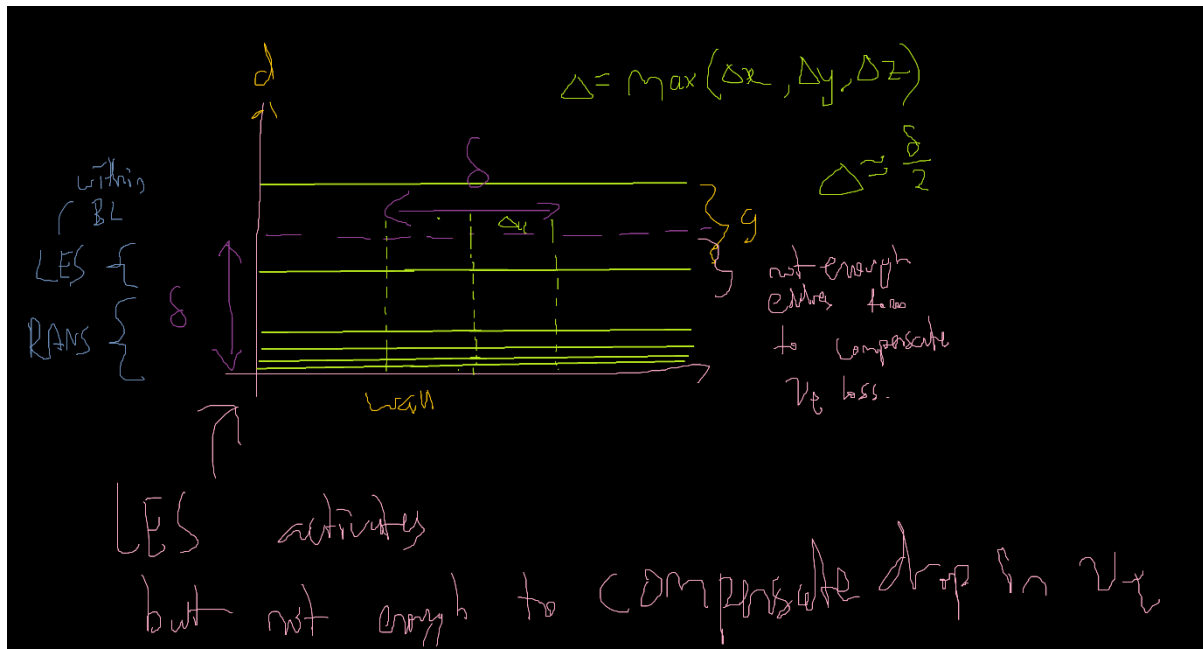 d
Δ = max(Δx, Δy, Δz)
δ
Δ ≈ δ/2
within
BL
LES {
δ
RANS {
g
not enough
eddies form
to compensate
νt loss.
wall
LES activates
but not enough to compensate drop in νt